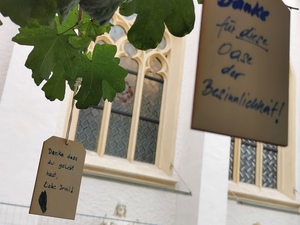 Danke
für diese
Oase
der
Besinnlichkeit!
Danke dass
du gelebt
hast,